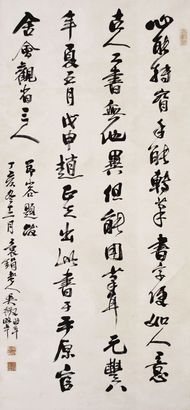 心能轉腕手能轉筆書字便如人意
古人工書無他異但能用筆耳元豐
年夏五月戊申趙正夫出此書于平原官
舍會觀者三人
題跋
丁亥冬十二月 老人吳